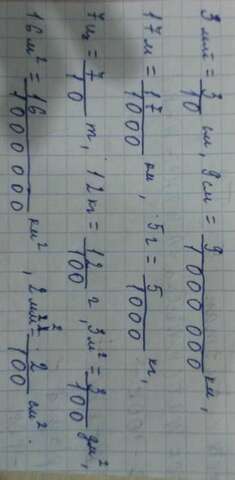 3 мм = 3/10 см, 9 см = 9/1000 000 км,
17 м = 17/1000 км, 5 г = 5/1000 кг,
7 ц = 7/10 т, 12 кг = 12/100 г, 3 м² = 3/100 дм²,
16 м² = 16/1000000 км², 2 мм² = 2/100 см².